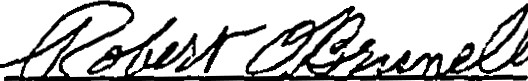 Robert O'Brunell